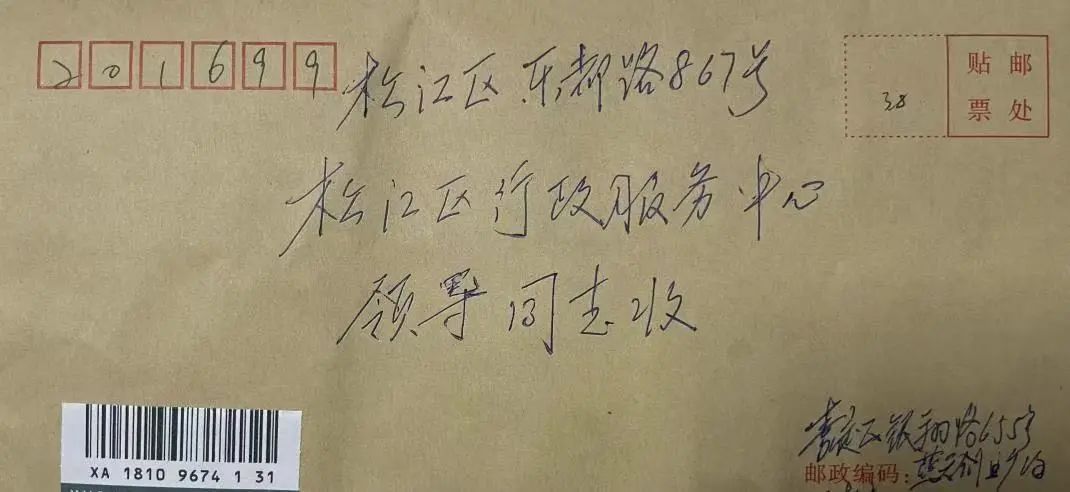 201699
松江区乐都路867号
贴邮
票处
38
松江区行政服务中心
领导同志收
XA 1810 9674 1 31
嘉定区银翔路655号
邮政编码: